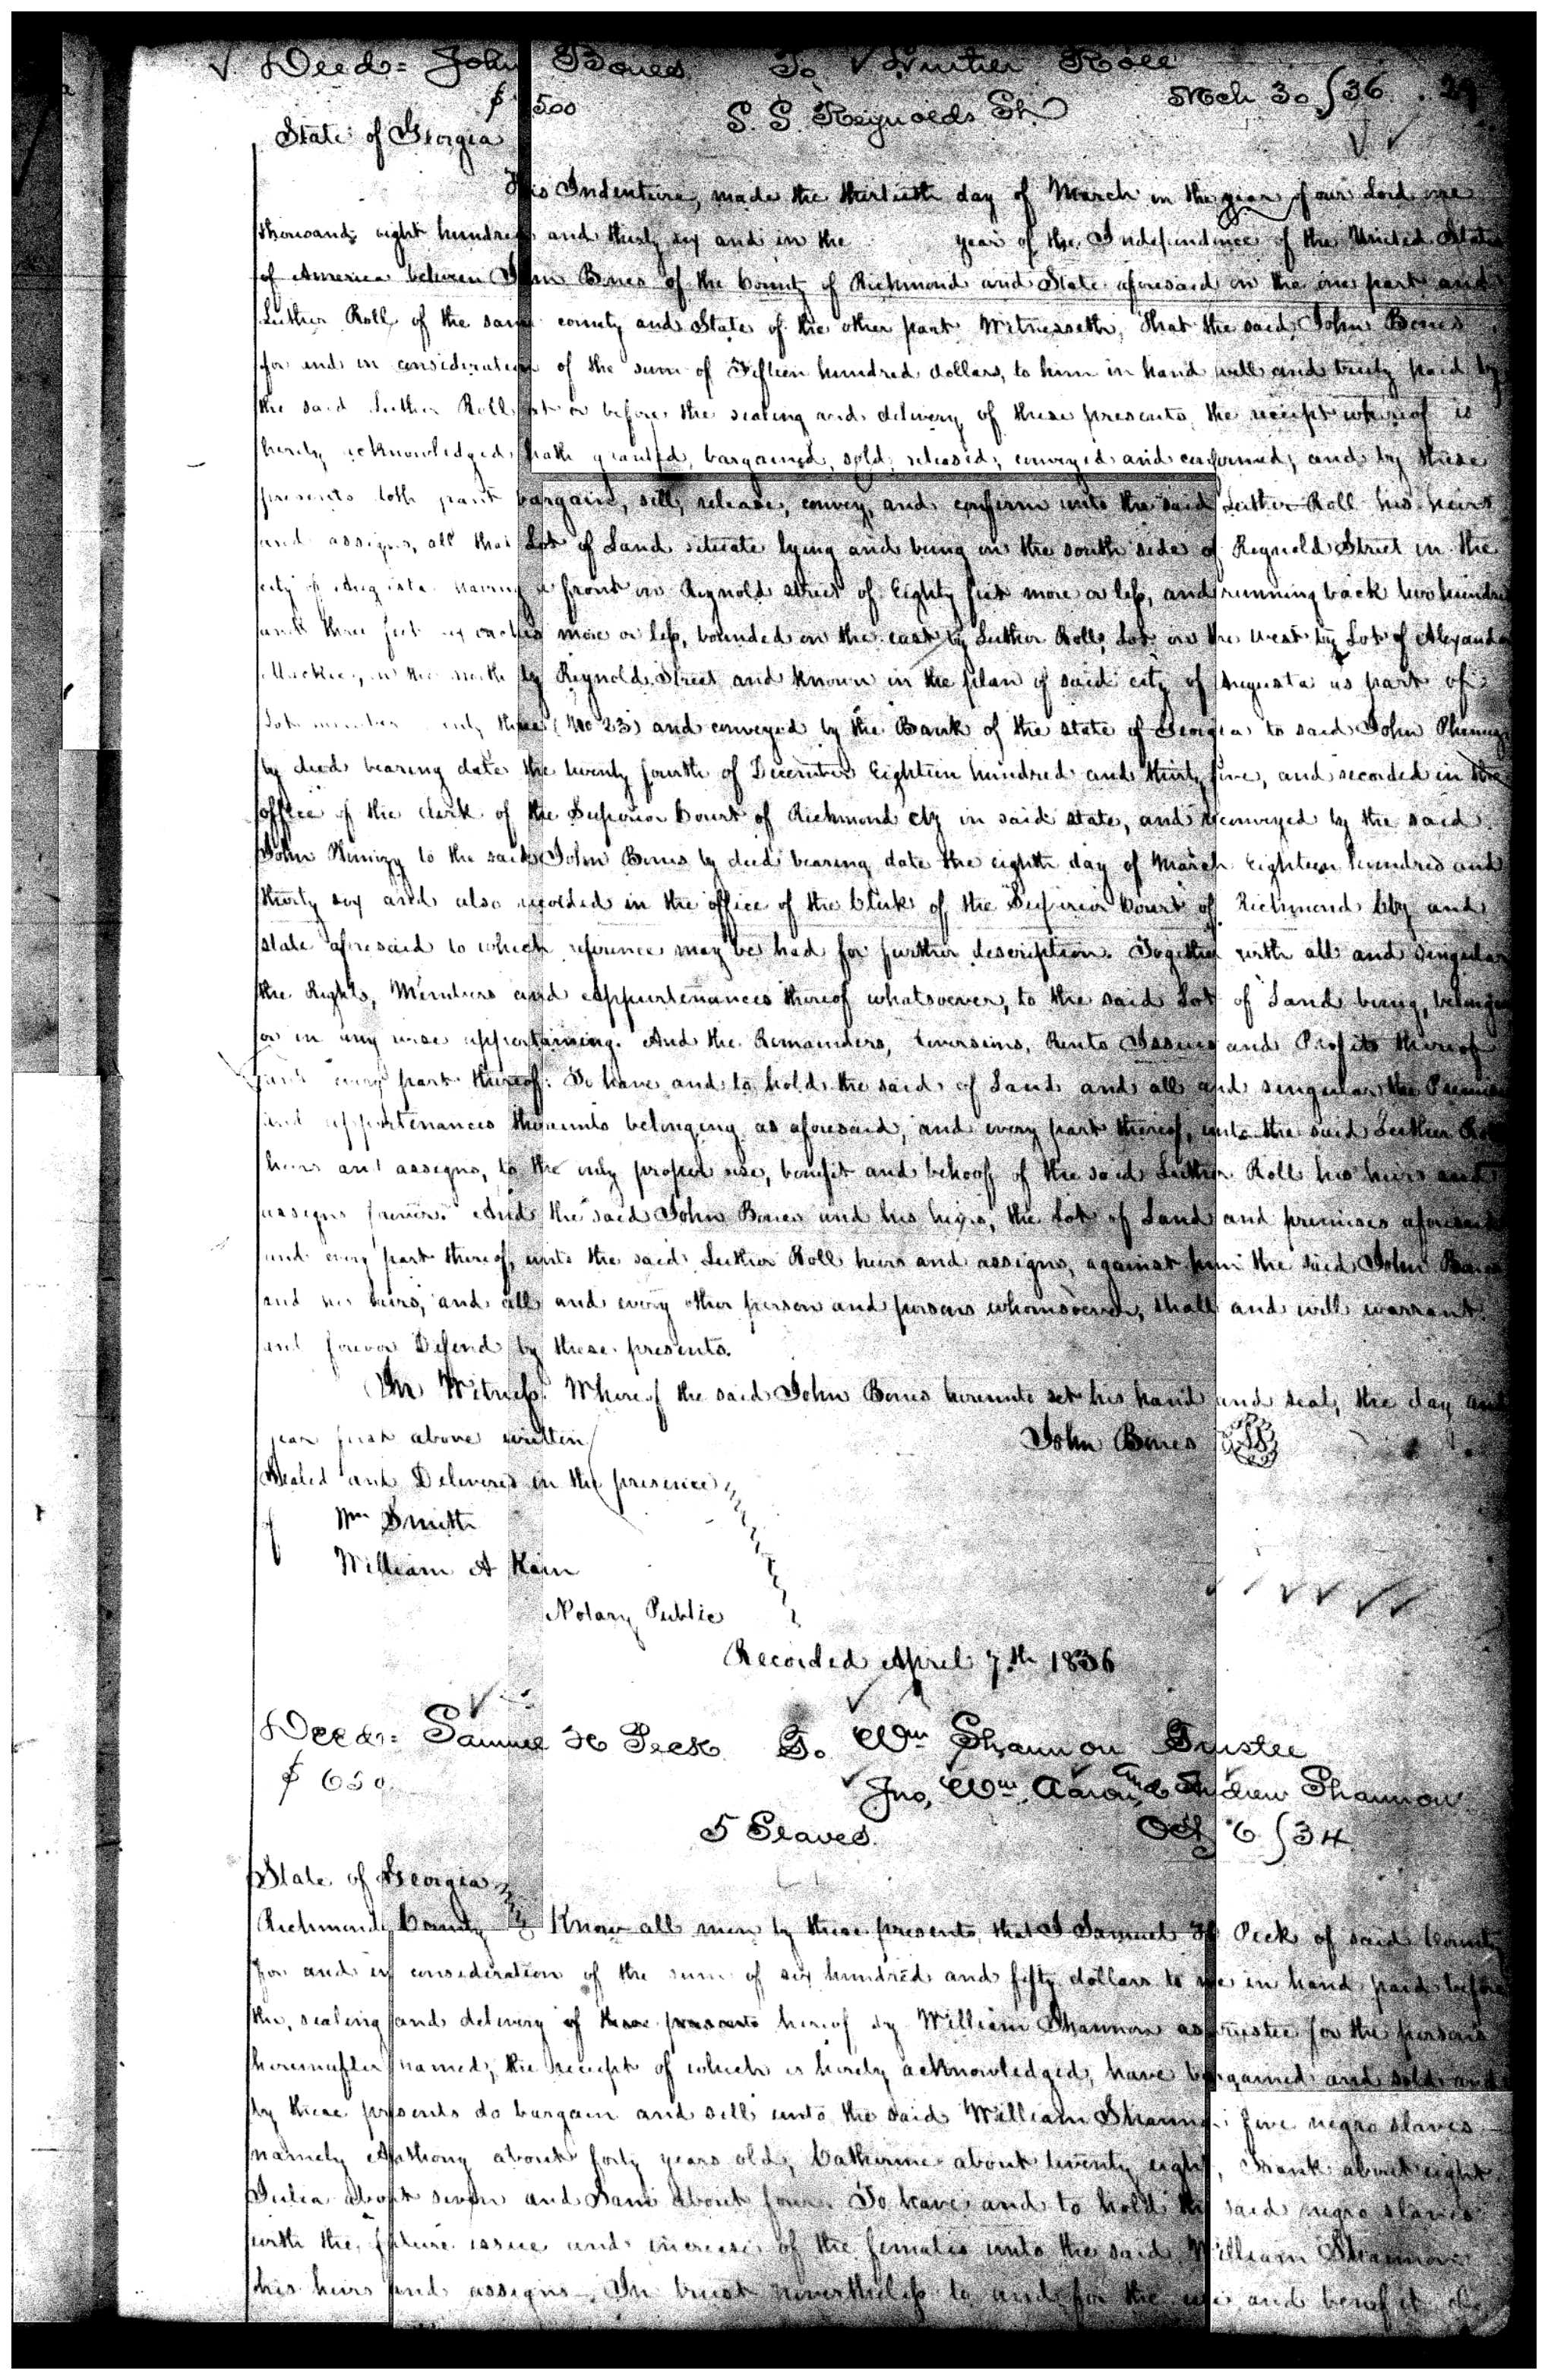 Deed = John Bones To Luther Roll
$1500 S. S. Reynolds St. Mch 30/36. 29
State of Georgia
This Indenture, made the thirtieth day of March in the year of our Lord one
thousand eight hundred and thirty six and in the year of the Independence of the United States
of America between John Bones of the County of Richmond and State aforesaid on the one part and
Luther Roll of the same county and State of the other part Witnesseth, That the said John Bones
for and in consideration of the sum of Fifteen hundred dollars, to him in hand well and truly paid by
the said Luther Roll at or before the sealing and delivery of these presents, the receipt whereof is
hereby acknowledged, hath granted, bargained, sold, released, conveyed and confirmed, and by these
presents doth grant bargain, sell, release, convey, and confirm unto the said Luther Roll his heirs
and assigns, all that Lot of Land situate lying and being on the south side of Reynold Street in the
city of Augusta having a front on Reynold street of Eighty feet more or less, and running back two hundred
and three feet six inches more or less, bounded on the east by Luther Rolls, Lot on the west by Lot of Alexander
Mackie, on the north by Reynold Street and known in the plan of said city of Augusta as part of
Lot number three (No 23) and conveyed by the Bank of the state of Georgia to said John Phinizy
by deed bearing date the twenty fourth of December Eighteen hundred and thirty five, and recorded in the
office of the clerk of the Superior Court of Richmond cty in said state, and conveyed by the said
John Phinizy to the said John Bones by deed bearing date the eighth day of March Eighteen hundred and
thirty six and also recorded in the office of the Clerk of the Superior Court of Richmond Cty and
state aforesaid to which reference may be had for further description. Together with all and singular
the Rights, Members and Appurtenances thereof whatsoever, to the said Lot of Land being, belonging
or in any wise appertaining. And the Remainders, Reversions, Rents Issues and Profits thereof
and every part thereof: To have and to hold the said of Land and all and singular the Premises
and appurtenances thereunto belonging as aforesaid, and every part thereof, unto the said Luther Roll
heirs and assigns, to the only proper use, benefit and behoof of the said Luther Roll his heirs and
assigns forever. And the said John Bones and his heirs, the Lot of Land and premises aforesaid
and every part thereof, unto the said Luther Roll heirs and assigns, against him the said John Bones
and his heirs, and all and every other person and persons whomsoever, shall and will warrant
and forever Defend by these presents.
In Witness Whereof the said John Bones hereunto set his hand and seal, the day and
year first above written
John Bones LS
Sealed and Delivered in the presence
of Wm Smith
William A Kain
Notary Public
Recorded April 7th 1836
Deed = Samuel H Peck To Wm Shannon Trustee
$650. Jno, Wm, Aaron, and Andrew Shannon
5 Slaves. Oct 6/34
State of Georgia
Richmond County Know all men by these presents, that I Samuel H Peck of said County
for and in consideration of the sum of six hundred and fifty dollars to me in hand paid before
the sealing and delivery of these presents hereof by William Shannon as trustee for the persons
hereinafter named, the receipt of which is hereby acknowledged, have bargained and sold and
by these presents do bargain and sell unto the said William Shannon five negro slaves
namely Anthony about forty years old, Catherine about twenty eight, Frank about eight
Julia about seven and Sam about four. To have and to hold the said negro slaves
with the future issue and increase of the females unto the said William Shannon
his heirs and assigns. In trust nevertheless to and for the use and benefit